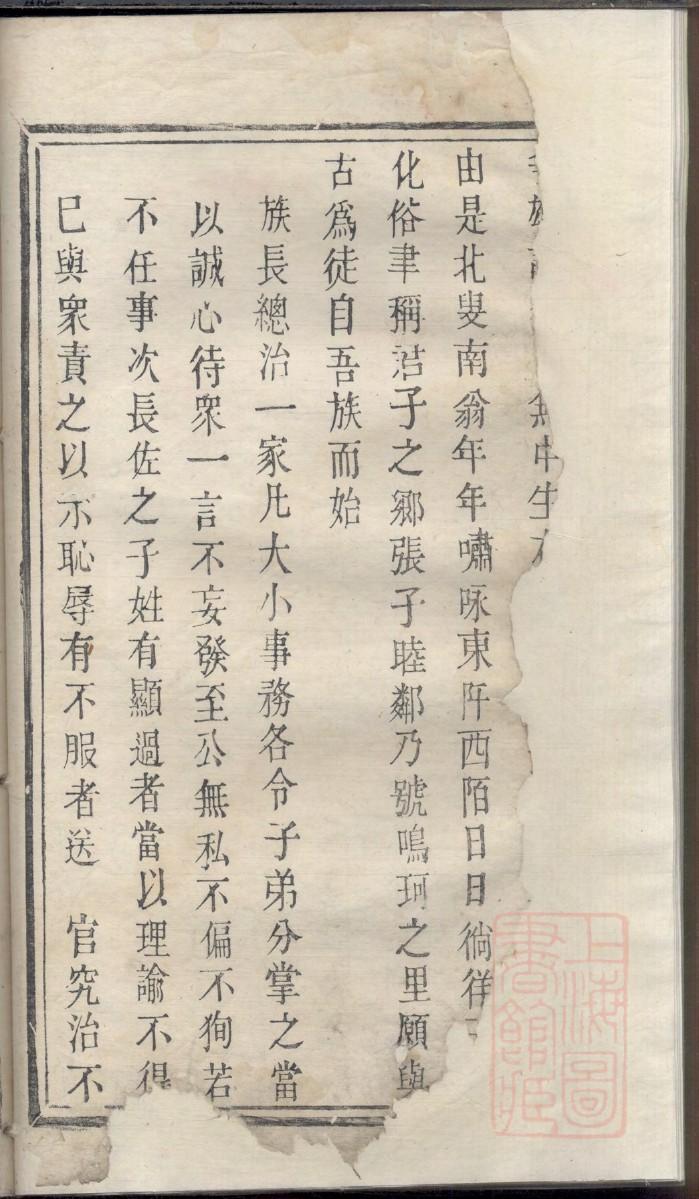 無中生
由是北叟南翁年年嘯咏東阡西陌日日徜徉
化俗聿稱君子之鄉張子睦鄰乃號鳴珂之里願與
古爲徒自吾族而始
族長總治一家凡大小事務各令子弟分掌之當
以誠心待衆一言不妄發至公無私不偏不狥若
不任事次長佐之子姓有顯過者當以理諭不得
已與衆責之以示恥辱有不服者送 官究治不
上海圖
書館